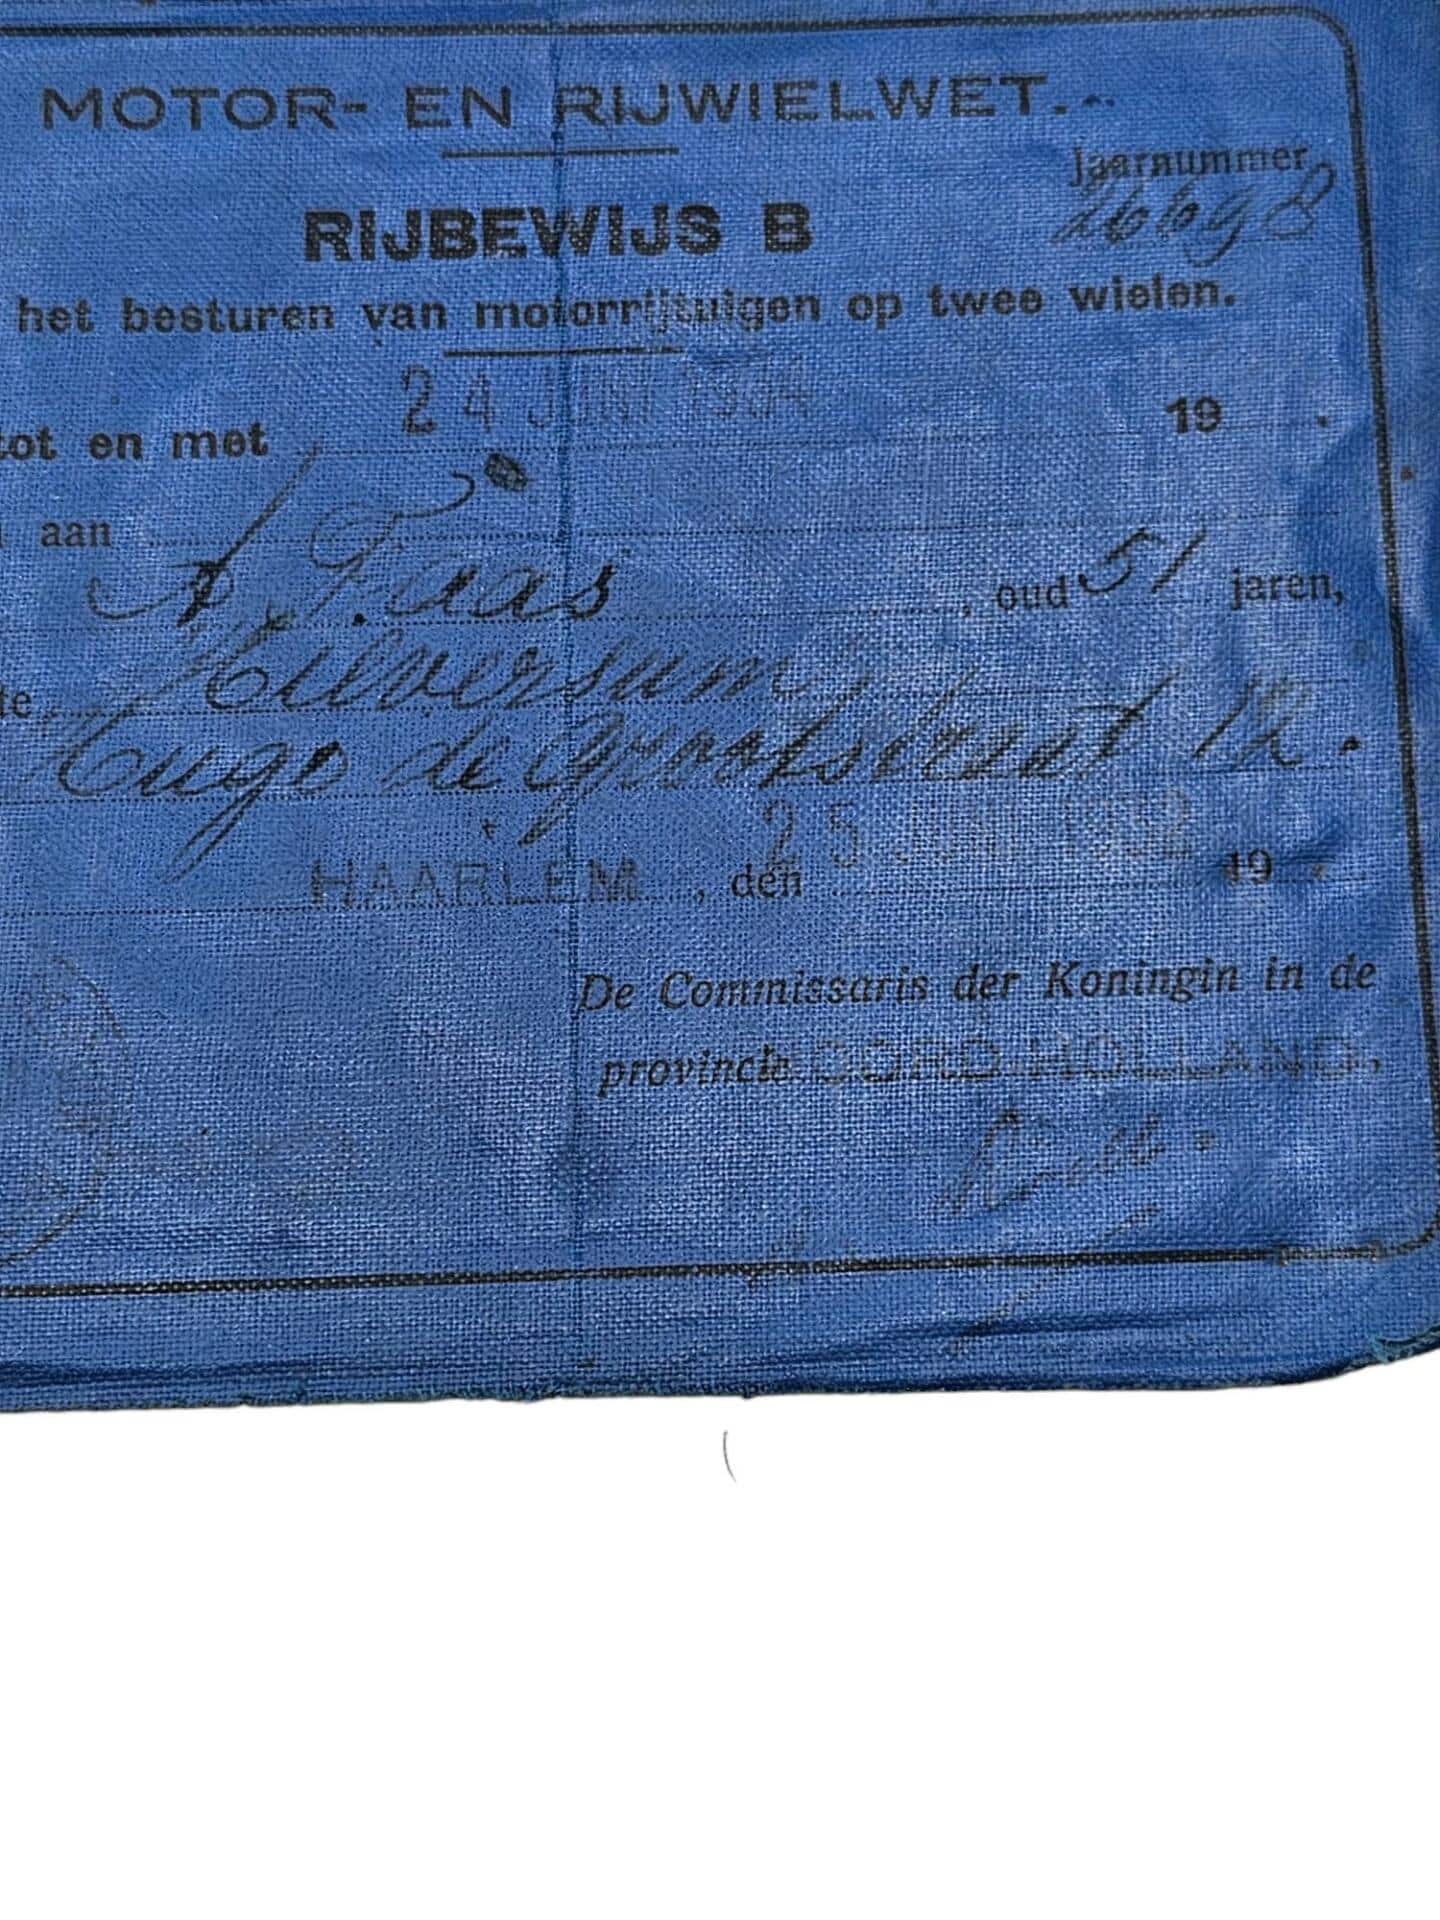 MOTOR- EN RIJWIELWET.
Jaarnummer
26698
RIJBEWIJS B
het besturen van motorrijtuigen op twee wielen.
tot en met 24 JUNI 1934 19 .
aan
A. Faas , oud 51 jaren,
te Hilversum,
Hugo de Grootstraat 12.
HAARLEM , den 25 JUNI 1932 19 .
De Commissaris der Koningin in de
provincie NOORD-HOLLAND,